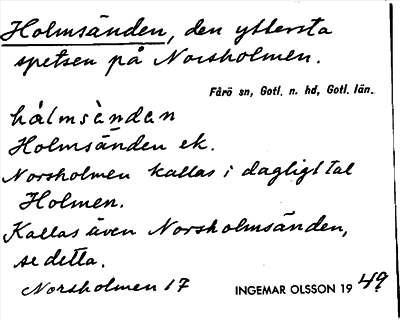 Holmsänden, den yttersta
spetsen på Norsholmen.
Fårö sn, Gotl. n. hd, Gotl. län.
hålmsὰndαn
Holmsänden ek.
Norsholmen kallas i dagligt tal
Holmen.
Kallas även Norsholmsänden,
se detta.
Norsholmen 17
INGEMAR OLSSON 19 49